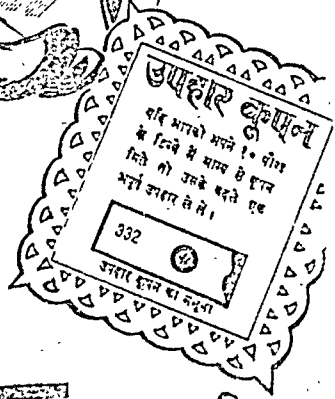 उपहार कूपन
यदि आपको अपने १० पौण्ड
के डिब्बे में भाग्य से कूपन
मिले तो उसके बदले एक
अपूर्व उपहार ले लें।
332
उपहार कूपन का नमूना